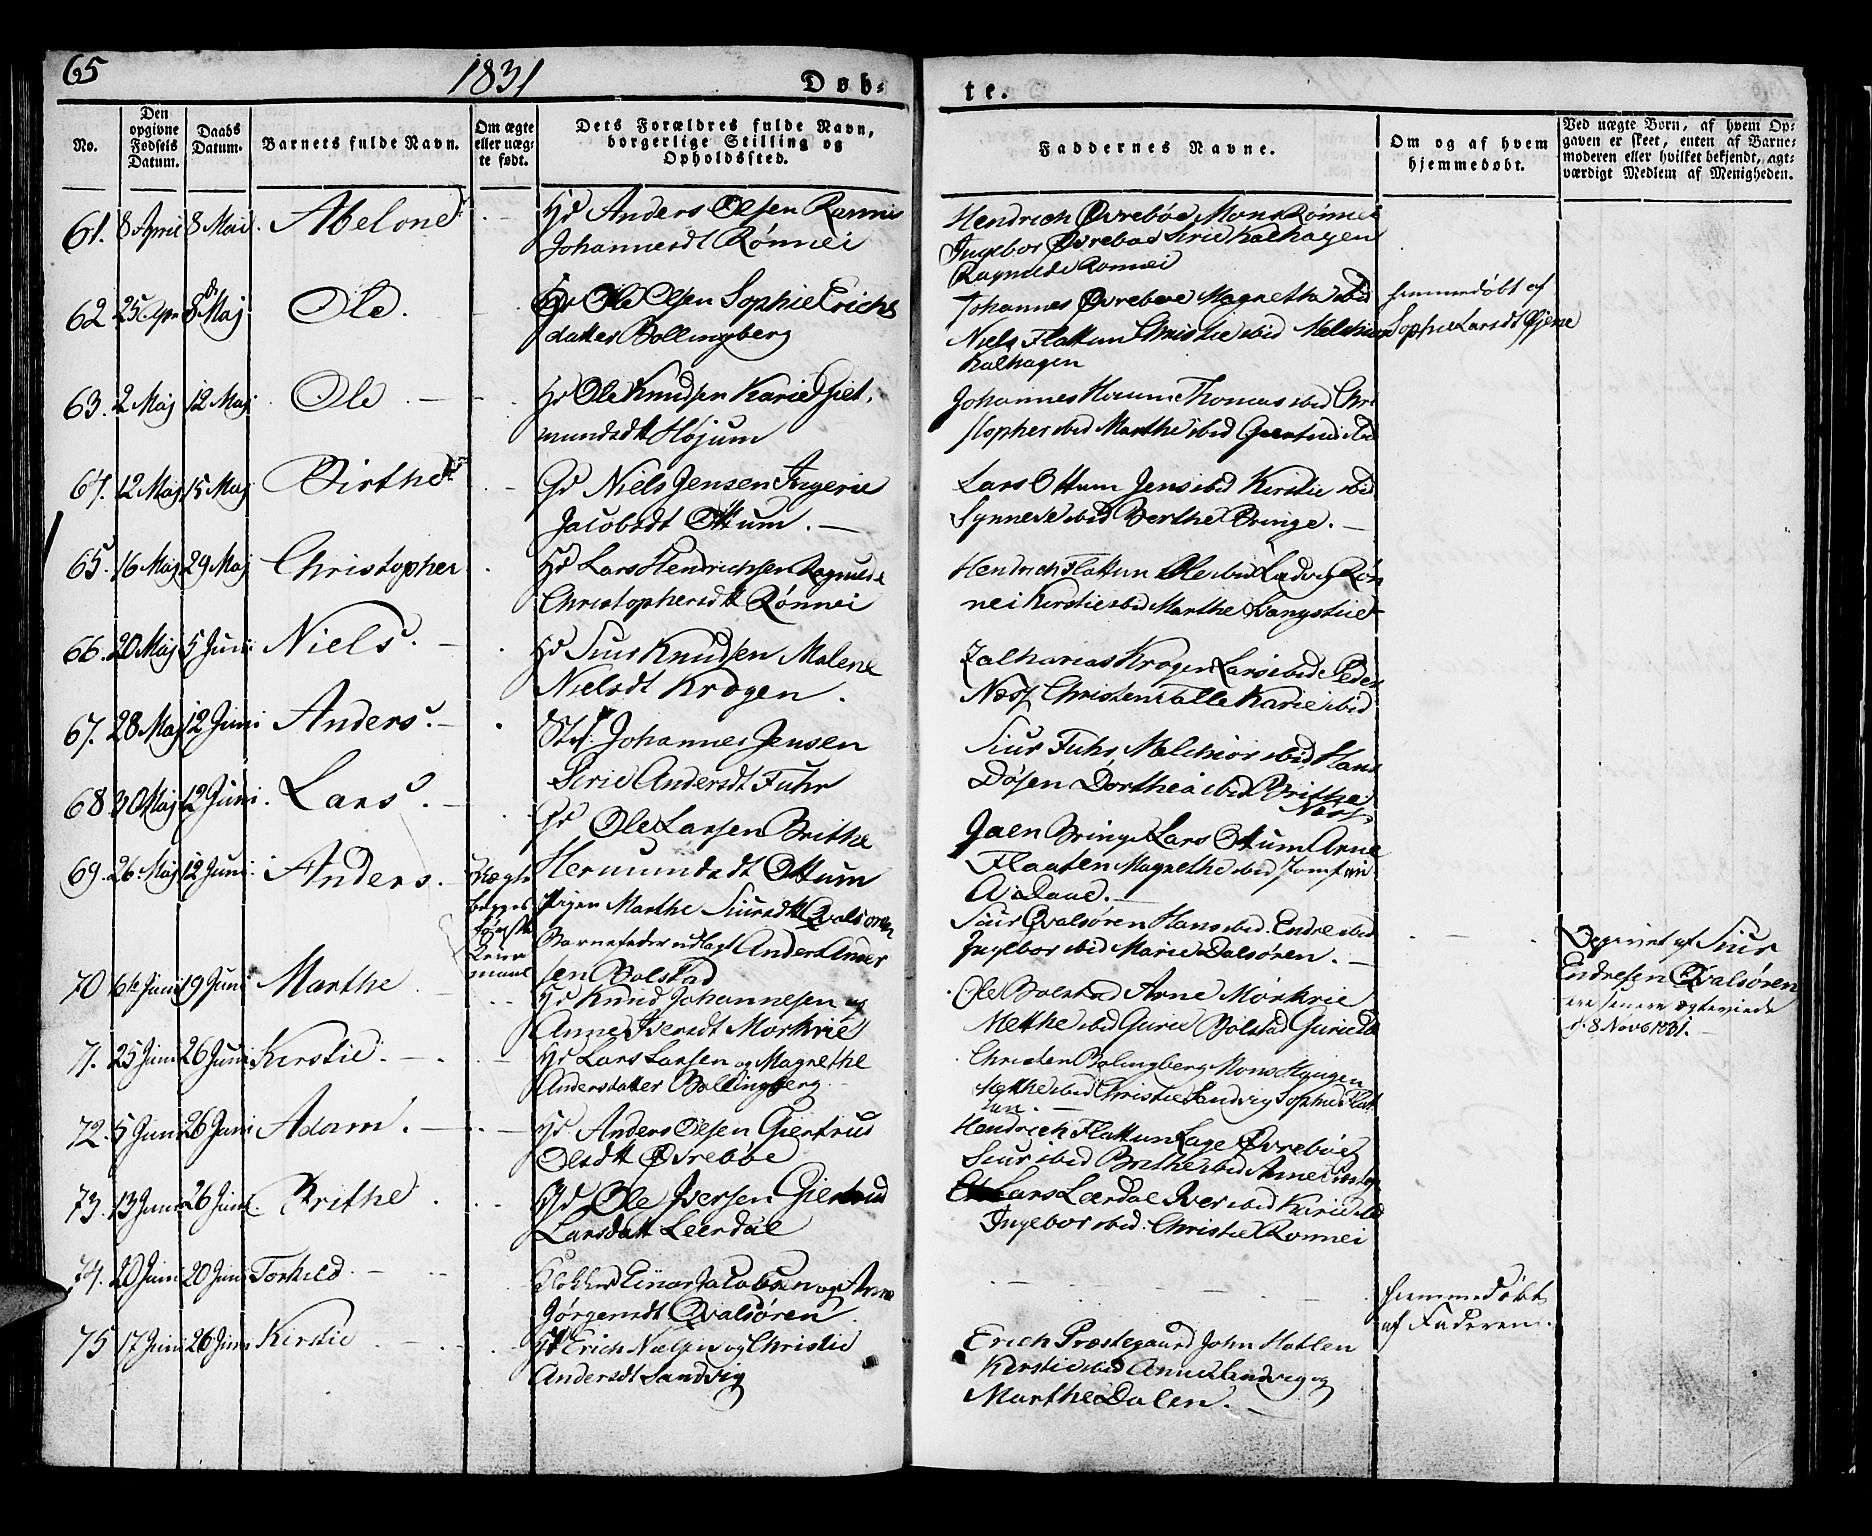 65 1831 Døb-
te.
No.
Den opgivne Fødsels Datum.
Daabs Datum.
Barnets fulde Navn.
Om ægte eller uæg-te født.
Dets Forældres fulde Navn, borgerlige Stilling og Opholdssted.
Faddernes Navne.
Om og af hvem hjemmedøbt.
Ved uægte Børn, af hvem Op-gaven er skeet, enten af Barne-moderen eller hvilket bekjendt, agt-værdigt Medlem af Menigheden.
61. 8 April 8 Mai. Abelone Hd Anders Olsen
Johannesdt Rønnei
Hendrich Øvrebøe Mons Rønnei
Ingebor Øvrebøe Sirie Kalhagen
Ragnilde Rønnei
62 25 Apr 8 Maj Ole. Gd Ole Olsen Sophie Erichs
datter Bollingberg
Johannes Øvrebøe Magnethe ibid
Niels Flattun Christie ibid Melchior
Kalhagen
hjemmedøbt af
Sophie Larsdt Øjene
63. 2 Maj 12 Maj Ole Hd Ole Knudsen Karie Giet
mundsdt Højum
Johannes Høium Thomas ibid Chri
stopher ibid Marthe ibid Giertrud ibid
64. 12 Maj 15 Maj Birthe Gd Niels Jensen Ingerie
Jacobsdt Ottum.
Lars Ottum Jens ibid Kirstie ibid
Synneve ibid Berthe Bringe.
65. 16 Maj 29 Maj Christopher Hd Lars Hendrichsen Ragnilde
Christophersdtt Rønnei
Hendrich Flattun Ole ibid Ludvig Røn
nei Kirstie ibid Marthe
66. 20 Maj 5 Juni Niels. Hd Siur Knudsen Malene
Nielsdt Krogen.
Zacharias Krogen Lars ibid Peder
Næss Christen Talle Karie ibid
67. 28 Maj 12 Juni Anders. Johannes Jensen
Sirie Andersdt Fuhr
Siur Fuhr Melchior ibid Hans
Døsen Dorthea ibid Brithe
Næss
68 30 Maj 12 Juni. Lars. Gd Ole Larsen Brithe
Hermundsdt Ottum
Joen Bringe Lars Ottum Arne
Flaaten Magnethe ibid Jomfrue
Aaland.
69. 26 Maj 12 Juni Anders. Uægte
begges
første
Leier
maal
Pigen Marthe Siursdtt Qvalsøren
Barnefader udlagt Anders Ander
sen Bolstad
Siur Qvalsøren Hans ibid. Endre ibid
Ingebor ibid Marie Dalsøren.
Opgivet af Siur
Endresen Qvalsøren
ere senere ægteviede
d. 8 Novb 1831.
70 6te Juni 19 Juni Marthe Hd Knud Johannesen og
Anne Iversdt Mørkrie
Ole Bolstad Arne Mørkrie
Methe ibid Gurie Bolstad Gurie
71. 25 Juni 26 Juni Kirstie. Hd Lars Larsen og Magnethe
Andersdatter Bollingberg.
Christen Bolingberg Mons Haugen
Methe ibid Christie Sandvig Sophie Flat
tun.
72. 5 Juni 26 Juni Adam. Hd Anders Olsen Giertrud
Olsdtt Øvrebøe
Hendrich Flattun Lage Øvrebøe
Siur ibid Brithe ibid Anne
73. 13 Juni 26 Juni. Brithe. Gd Ole Iversen Giertrud
Larsdatt Leerdal
Lars Lærdal Iver ibid Karie ibid
Ingebor ibid. Christie Rønnei
74. 20 Juni 20 Juni Torkild. Klokker Einar Jacobsen og Anne
Jørgensdt Qvalsøren
hjemmedøbt
af Faderen.
75 17 Juni 26 Juni Kirstie Hd Erich Nielsen og Christie
Andersdt Sandvig
Erich Præstegaard John Hatlen
Kirstie ibid Anne Sandvig og
Marthe Dalen.